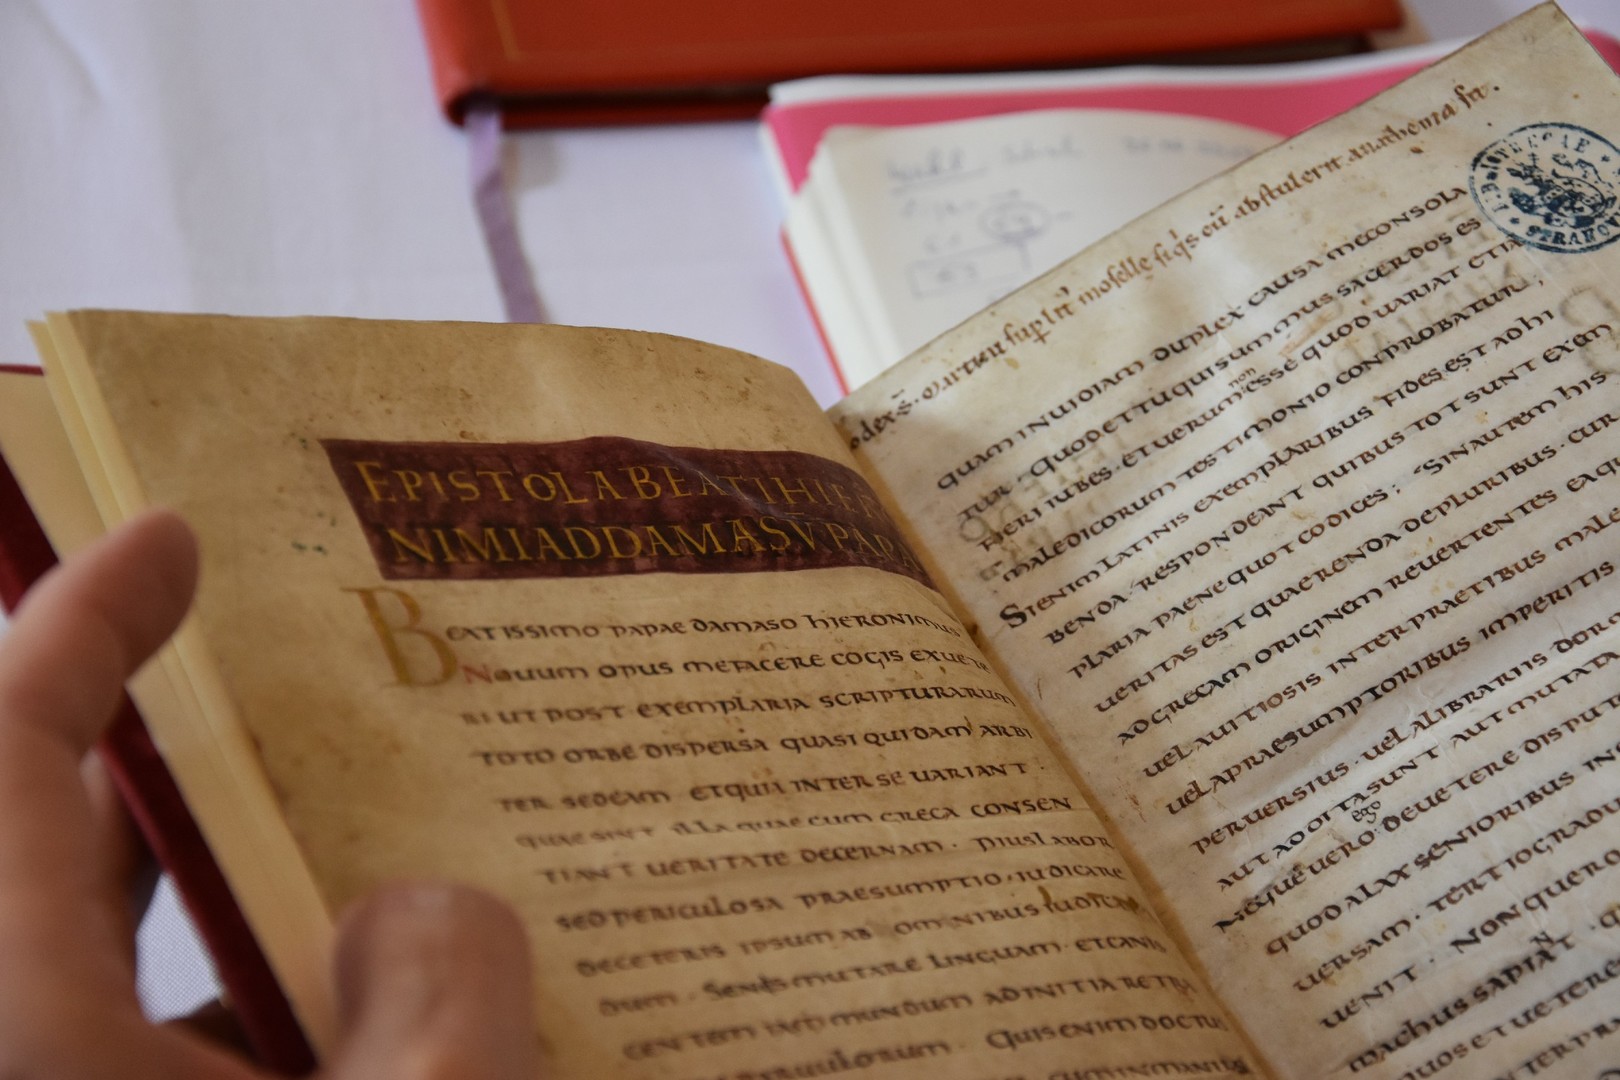 EPISTOLA BEATI HIER
NIMI AD DAMASV PAPA
BEATISSIMO PAPAE DAMASO HIERONIMUS
NOUUM OPUS ME FACERE COGIS EX UETE
RI UT POST EXEMPLARIA SCRIPTURARUM
TOTO ORBE DISPERSA QUASI QUIDAM ARBI
TER SEDEAM ET QUIA INTER SE UARIANT ·
QUAE SINT ILLA QUAE CUM GRECA CONSEN
TIANT UERITATE DECERNAM · PIUS LABOR
SED PERICULOSA PRAESUMPTIO, IUDICARE
DE CETERIS IPSUM AB OMNIBUS IUDICAN
DUM · SENIS MUTARE LINGUAM · ET CANE
CENTEM MUNDUM AD INITIA RETRA
PARUULORUM · QUIS ENIM DOCTUS
CUM IN MANUS
odex ſ̄. ſup lit moſelle ſi q̇s eū abſtulerit anathema ſit.
BIBLIOTHECAE
QUAM INUIDIAM DUPLEX CAUSA ME CONSOLA
TUR · QUOD ET TU QUI SUMMUS SACERDOS ES
FIERI IUBES · ET UERUM non ESSE QUOD UARIAT ETIA
MALEDICORUM TESTIMONIO CONPROBATUR;
SI ENIM LATINIS EXEMPLARIBUS FIDES EST ADHI
BENDA · RESPONDEANT QUIBUS TOT SUNT EXEM
PLARIA PAENE QUOT CODICES; SIN AUTEM
UERITAS EST QUAERENDA DE PLURIBUS · CUR
AD GRECAM ORIGINEM REUERTENTES EA QU
UEL A UITIOSIS INTERPRAETIBUS MALE
UEL A PRAESUMPTORIBUS IMPERITIS
PERUERSIUS · UEL A LIBRARIIS DOR
AUT ADDITA SUNT AUT MUTATA
NEQUE UERO ego DE UETERE DISPUT
QUOD A LXX SENIORIBUS IN
UERSAM · TERTIO GRADU
UENIT · NON QUERO
MACHUS SAPIANT · Q
UOS ET UETERES
INTERPRA